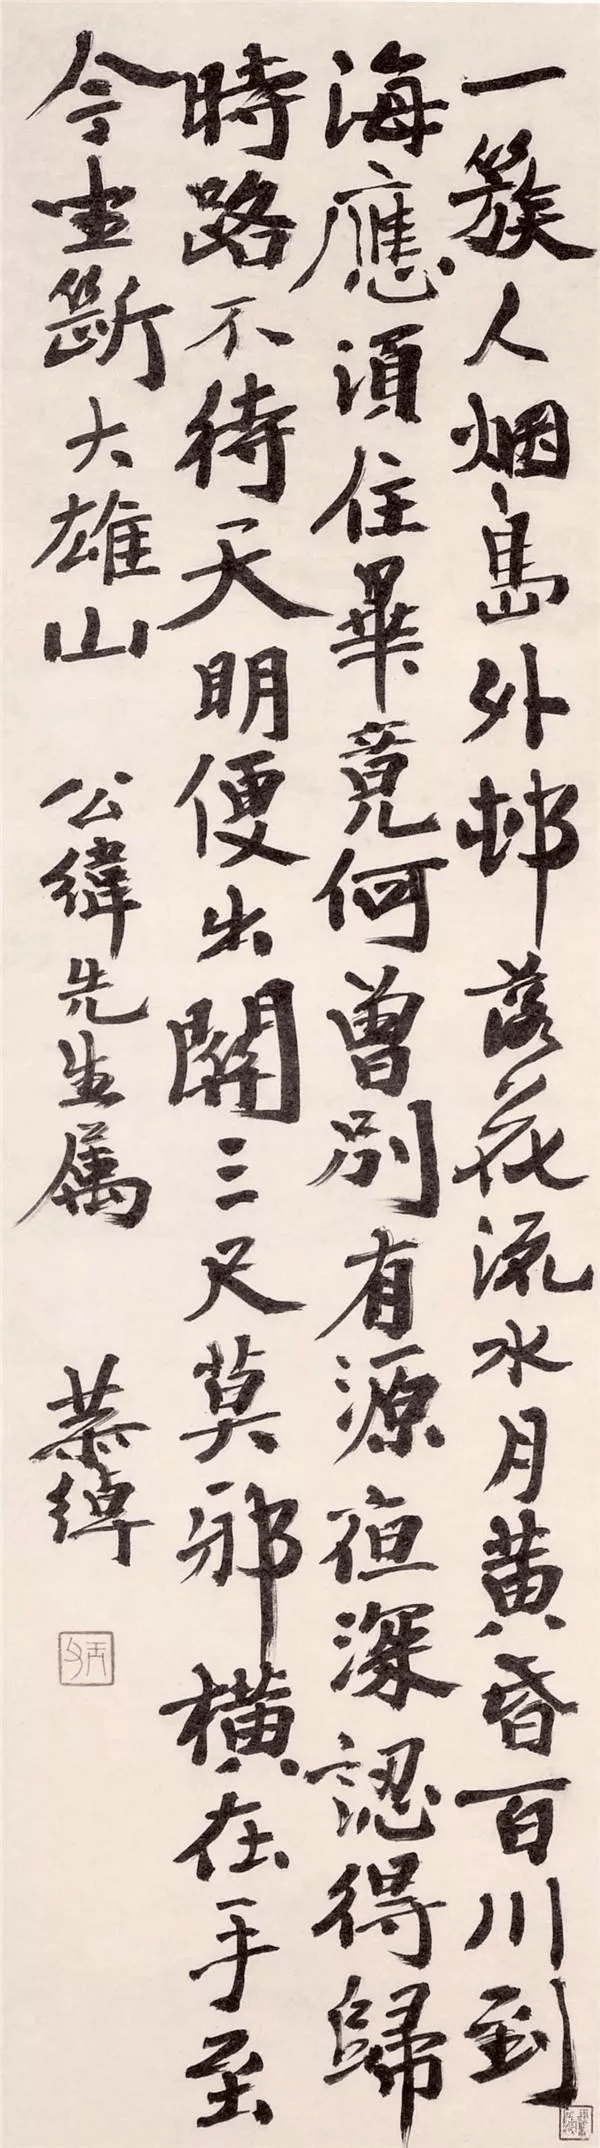 一簇人烟島外邨落花流水月黄昏百川到
海應須住畢竟何曾别有源夜深認得歸
時路不待天明便出關三尺莫邪横在手至
今坐斷大雄山
公緯先生属
慕韓